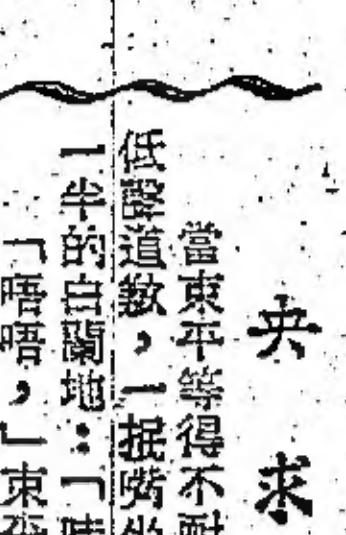 央求
當東平等得不耐
低聲道歉,一抿嘴坐
一半的白蘭地:「哇
「唔唔,」東平